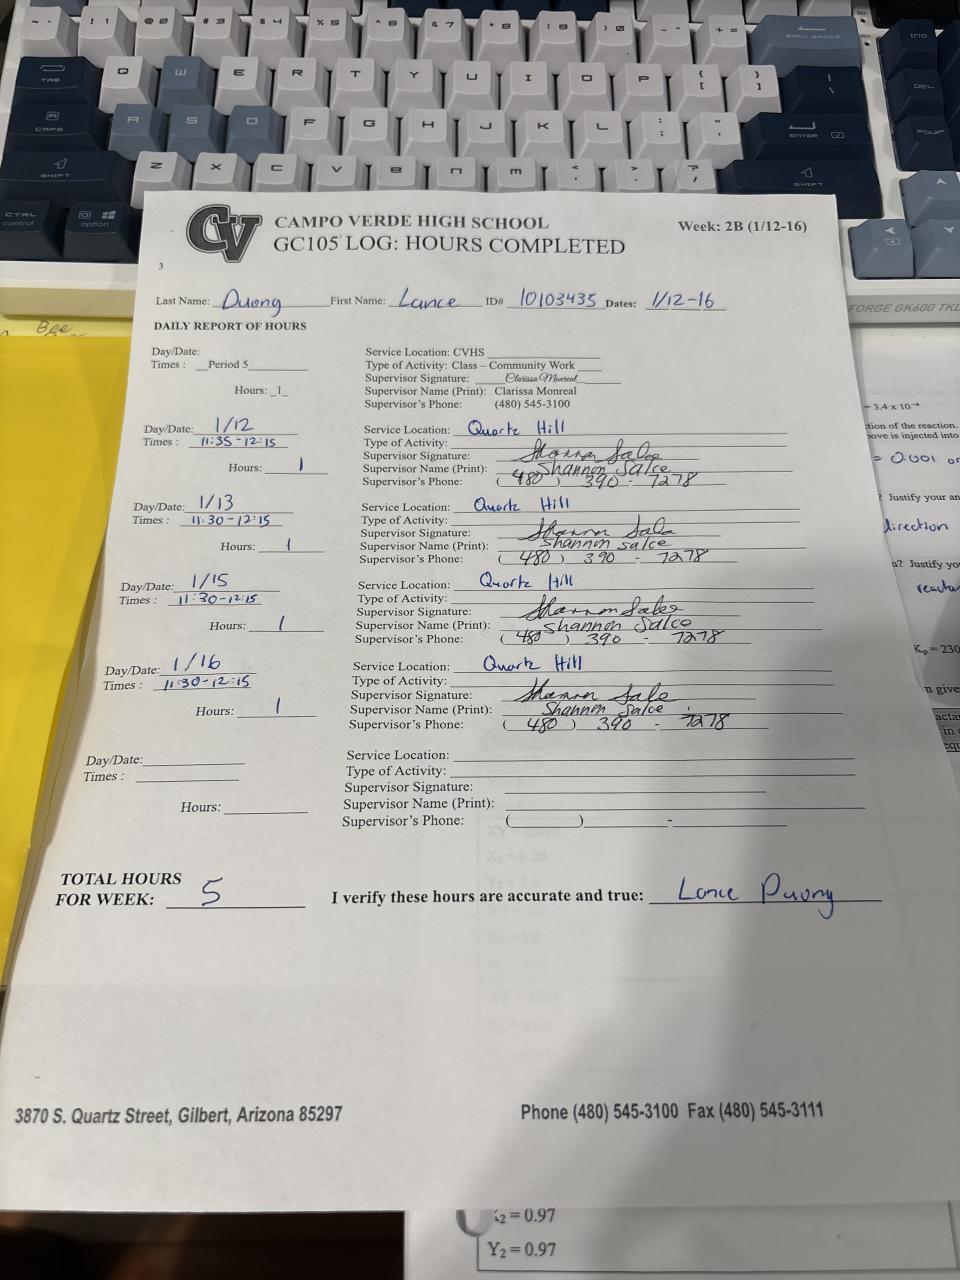 ~ ` ! 1 @ 2 # 3 $ 4 % 5 ^ 6 & 7 * 8 ( 9 ) 0 - - + = BACK SPACE INS
TAB Q W E R T Y U I O P { [ } ] | \ DEL
CAPS A S D F G H J K L : ; " ' ENTER PGUP
SHIFT Z X C V B N M < , > . ? / SHIFT
CTRL control option
FORGE GK600 TKL
Bee
CV
CAMPO VERDE HIGH SCHOOL
GC105 LOG: HOURS COMPLETED
Week: 2B (1/12-16)
3
Last Name: Duong First Name: Lance ID# 10103435 Dates: 1/12-16
DAILY REPORT OF HOURS
Day/Date: Service Location: CVHS
Times : Period 5 Type of Activity: Class – Community Work
Supervisor Signature: Clarissa Monreal
Hours: 1 Supervisor Name (Print): Clarissa Monreal
Supervisor's Phone: (480) 545-3100
Day/Date: 1/12 Service Location: Quartz Hill
Times : 11:35-12:15 Type of Activity:
Supervisor Signature: Shannon Salce
Hours: 1 Supervisor Name (Print): Shannon Salce
Supervisor's Phone: (480) 390-7278
Day/Date: 1/13 Service Location: Quartz Hill
Times : 11:30-12:15 Type of Activity:
Supervisor Signature: Shannon Salce
Hours: 1 Supervisor Name (Print): Shannon Salce
Supervisor's Phone: (480) 390-7278
Day/Date: 1/15 Service Location: Quartz Hill
Times : 11:30-12:15 Type of Activity:
Supervisor Signature: Shannon Salce
Hours: 1 Supervisor Name (Print): Shannon Salce
Supervisor's Phone: (480) 390-7278
Day/Date: 1/16 Service Location: Quartz Hill
Times : 11:30-12:15 Type of Activity:
Supervisor Signature: Shannon Salce
Hours: 1 Supervisor Name (Print): Shannon Salce
Supervisor's Phone: (480) 390-7278
Day/Date: Service Location:
Times : Type of Activity:
Supervisor Signature:
Hours: Supervisor Name (Print):
Supervisor's Phone: ( ) -
TOTAL HOURS
FOR WEEK: 5 I verify these hours are accurate and true: Lance Duong
3870 S. Quartz Street, Gilbert, Arizona 85297 Phone (480) 545-3100 Fax (480) 545-3111
= 3.4 x 10⁻⁴
tion of the reaction.
ove is injected into
= 0.001 or
? Justify your an
direction
n? Justify yo
Kp = 230
n give
in
equ
X₂ = 0.97
Y₂ = 0.97